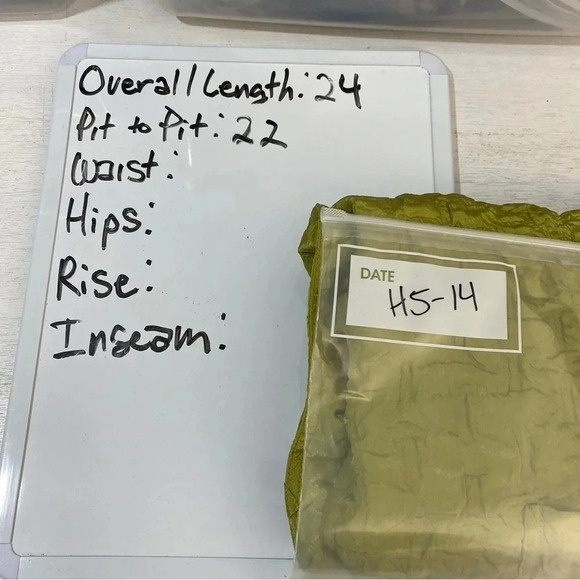 Overall Length: 24
Pit to Pit: 22
Waist:
Hips:
Rise:
Inseam:
DATE
H5-14